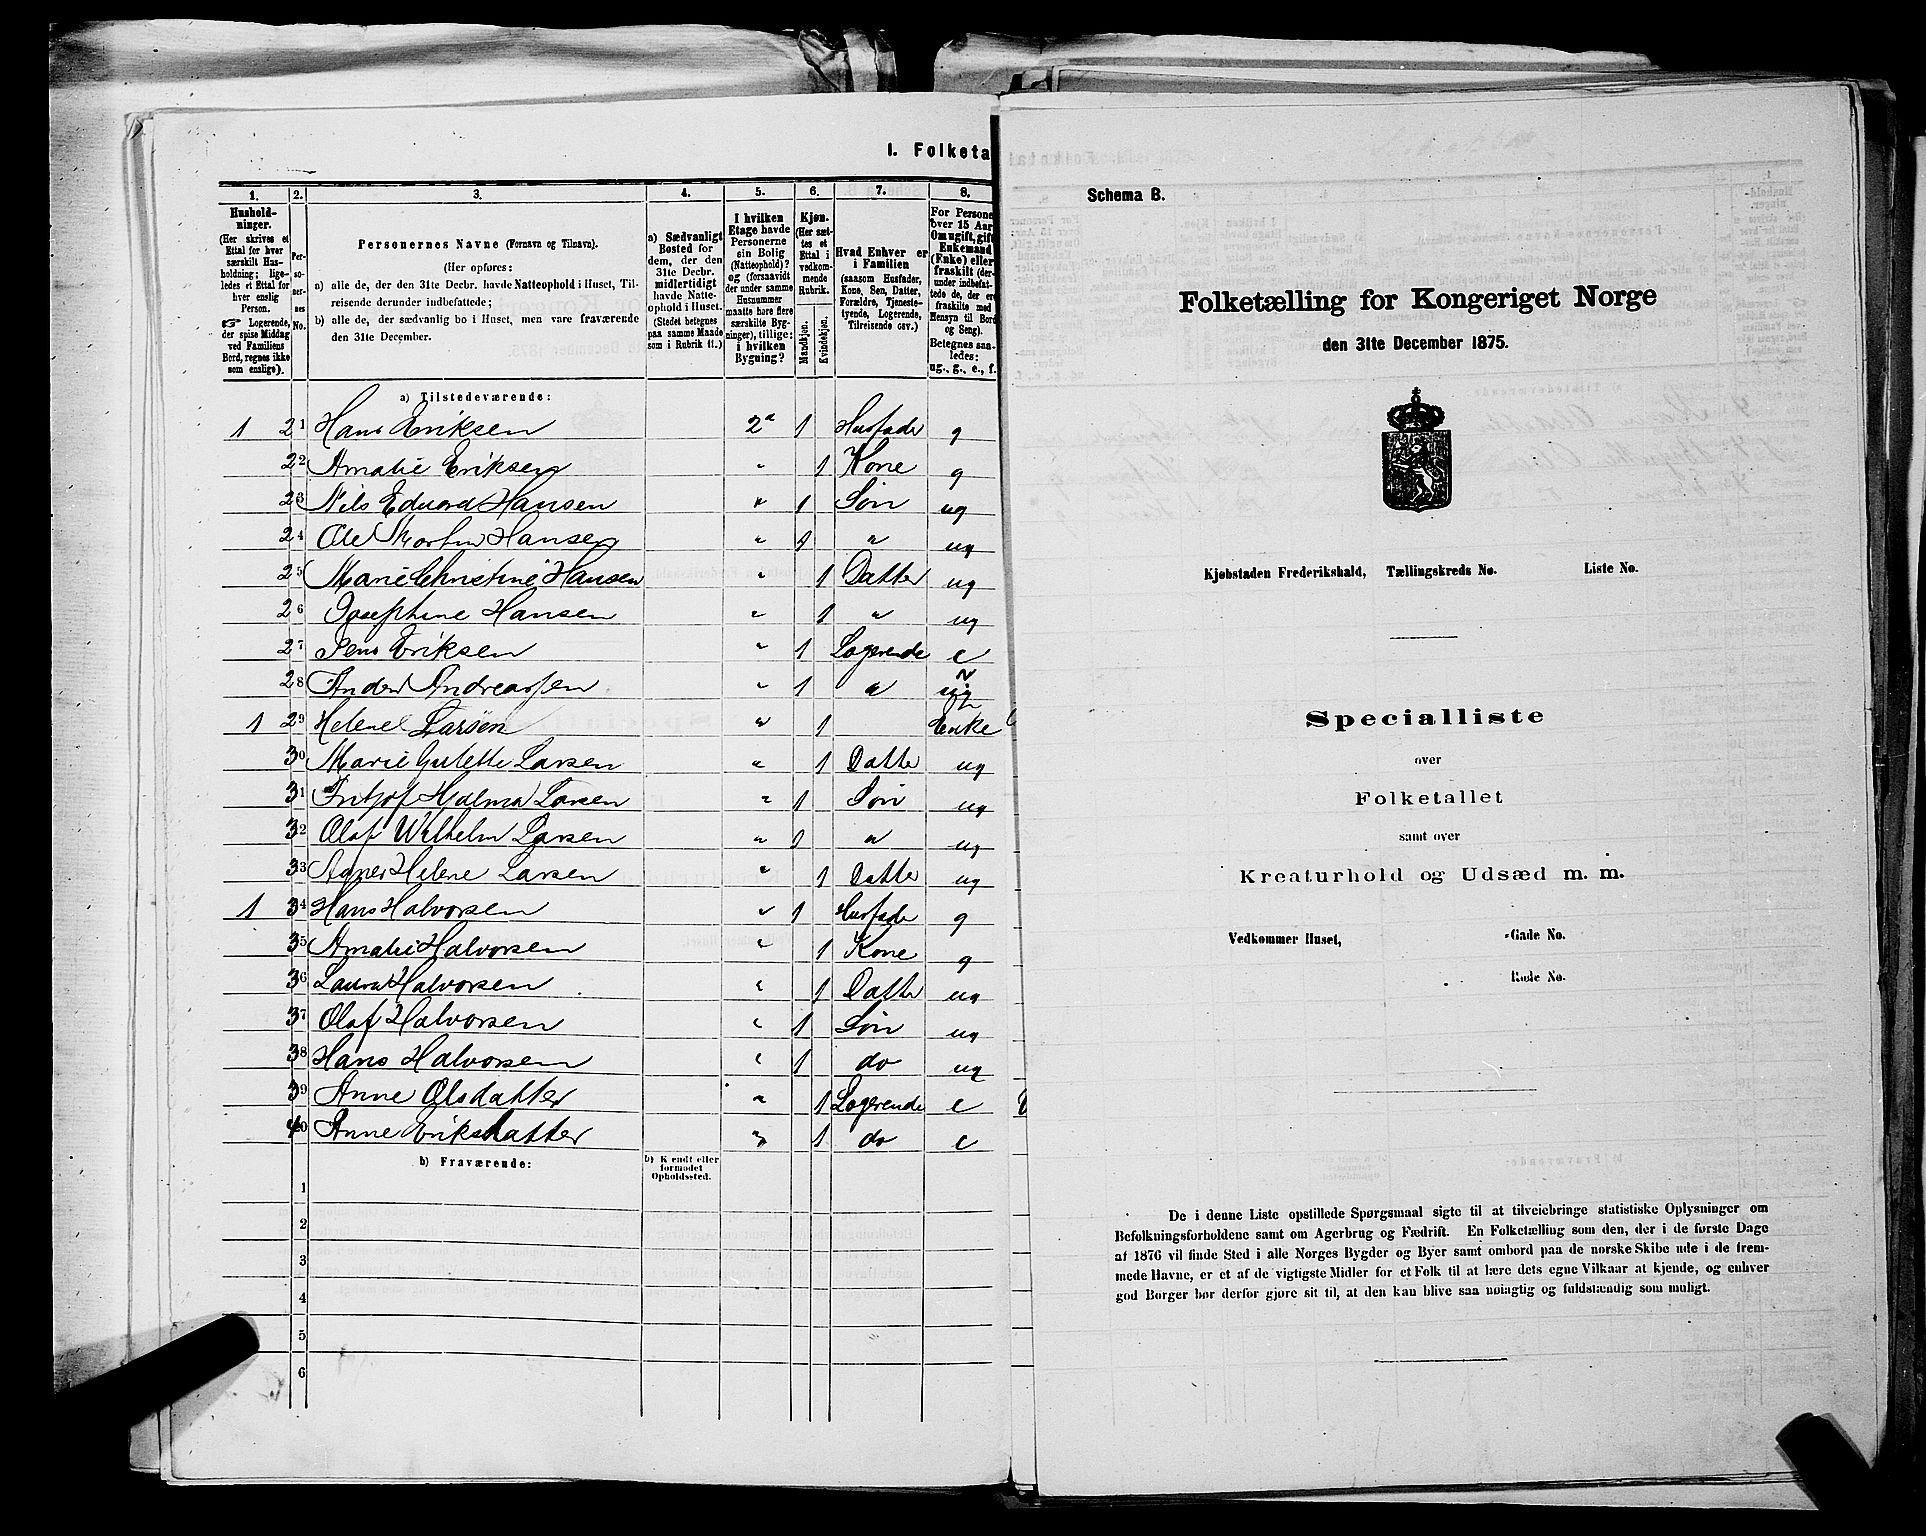 I. Folketa
1. 2. 3. 4. 5. 6. 7. 8.
Hushold-
ninger.
(Her skrives et
Ettal for hver
særskilt Hus-
holdning; lige-
ledes et Ettal for
hver enslig
Person.
☞ Logerende,
der spise Middag
ved Familiens
Bord, regnes ikke
som enslige).
Per-
so-
ner-
nes
No.
Personernes Navne (Fornavn og Tilnavn).
(Her opføres:
a) alle de, der den 31te Decbr. havde Natteophold i Huset, Til-
reisende derunder indbefattede;
b) alle de, der sædvanlig bo i Huset, men vare fraværende
den 31te December.
a) Sædvanligt
Bosted for
dem, der den
31te Decbr.
midlertidigt
havde Natte-
ophold i Huset.
(Stedet betegnes
paa samme Maade
som i Rubrik 11.)
I hvilken
Etage havde
Personerne
sin Bolig
(Natteophold)?
og (forsaavidt
der under samme
Husnummer
maatte høre flere
særskilte Byg-
ninger), tillige:
i hvilken
Bygning?
Kjøn.
(Her sæt-
tes et
Ettal i
vedkom-
mende
Rubrik.
Mandkjøn.
Kvindekjøn.
Hvad Enhver er
i Familien
(saasom Husfader,
Kone, Søn, Datter,
Forældre, Tjeneste-
tyende, Logerende,
Tilreisende osv.)
For Persone
over 15 Aar
Omugift, gift
Enkemand
(Enke) eller
fraskilt (der-
under indbefat-
tede de, der er
fraskilte med
Hensyn til Bord
og Seng).
Betegnes saa-
ledes:
ug., g., e., f.
a) Tilstedeværende:
1 21 Hans Eriksen 2a 1 Husfader g
22 Amalie Eriksen " 1 Kone g
23 Nils Eduard Hansen " 1 Søn ug
24 Ole Morten Hansen " 1 " ug
25 Marie Christine Hansen " 1 Datter ug
26 Josephine Hansen " 1 " ug
27 Jens Eriksen " 1 Logerende e
28 Anders Andreassen " 1 "
1 29 Helene Larsen " 1 Enke
30 Marie Gulette Larsen " 1 Datter ug
31 Fritjof Halmar Larsen " 1 Søn ug
32 Olaf Wilhelm Larsen " 1 " ug
33 Agnes Helene Larsen " 1 Datter ug
1 34 Hans Halvorsen " 1 Husfader g
35 Amalie Halvorsen " 1 Kone g
36 Laura Halvorsen " 1 Datter ug
37 Olaf Halvorsen " 1 Søn ug
38 Hans Halvorsen " 1 do ug
39 Anne Olsdatter " 1 Logerende e
40 Anne Eriksdatter " 1 do e
b) Fraværende:
b) Kendt eller
formodet
Opholdssted.
1
2
3
4
5
6
Schema B.
Folketælling for Kongeriget Norge
den 31te December 1875.
Kjøbstaden Frederikshald, Tællingskreds No. Liste No.
Specialliste
over
Folketallet
samt over
Kreaturhold og Udsæd m. m.
Vedkommer Huset, -Gade No.
Rode No.
De i denne Liste opstillede Spørgsmaal sigte til at tilveiebringe statistiske Oplysninger om
Befolkningsforholdene samt om Agerbrug og Fædrift. En Folketælling som den, der i de første Dage
af 1876 vil finde Sted i alle Norges Bygder og Byer samt ombord paa de norske Skibe ude i de frem-
mede Havne, er et af de vigtigste Midler for et Folk til at lære dets egne Vilkaar at kjende, og enhver
god Borger bør derfor gjøre sit til, at den kan blive saa nøiagtig og fuldstændig som muligt.